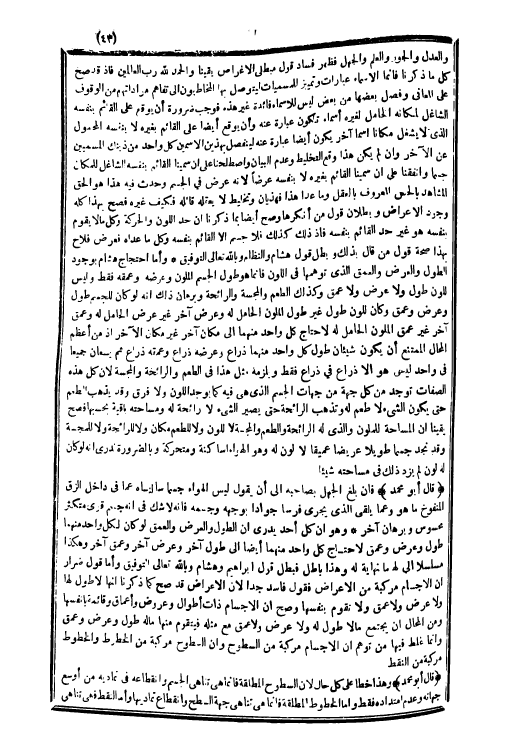 (٤٣)
والعدل والجور والعلم والجهل فظهر فساد قول مبطلي الاعراض يقينا والحمد لله رب العالمين فاذ قد صح
كل ما ذكرنا فانما الاسماء عبارات وتمييز للمسميات ليتوصل بها المخاطبون الى تفاهم مراداتهم من الوقوف
على المعاني وفصل بعضها من بعض ليس للاسماء فائدة غير هذه فوجب ضرورة أن يوقع على القائم بنفسه
الشاغل لمكانه الحامل لغيره أسماء تكون عبارة عنه وأن يوقع أيضا على القائم بغيره لا بنفسه المحمول
الذي لا يشغل مكانا اسما آخر يكون أيضا عبارة عنه لينفصل بهذين الاسمين كل واحد من ذينك المسميين
عن الآخر وان لم يكن هذا وقع التخليط وعدم البيان واصطلحنا على ان سمينا القائم بنفسه الشاغل للمكان
جسما واتفقنا على ان سمينا القائم بغيره لا بنفسه عرضا لانه عرض في الجسم وحدث فيه هذا هو الحق
المشاهد بالحس المعروف بالعقل وما عدا هذا فهذيان وتخليط لا يعقله قائله فكيف غيره فصح بهذا كله
وجود الاعراض وبطلان قول من أنكرها وصح أيضا بما ذكرنا ان حد اللون والحركة وكل ما لا يقوم
بنفسه هو غير حد القائم بنفسه فاذ ذلك كذلك فلا جسم الا القائم بنفسه وكل ما عداه فعرض فلاح
بهذا صحة قول من قال بذلك وبطل قول هشام والنظام وبالله تعالى التوفيق * وأما احتجاج هشام بوجود
الطول والعرض والعمق الذي توهمها في اللون فانما هو طول الجسم الملون وعرضه وعمقه فقط وليس
للون طول ولا عرض ولا عمق وكذلك الطعم والمجسة والرائحة وبرهان ذلك انه لو كان للجسم طول
وعرض وعمق وكان للون طول غير طول الملون الحامل له وعرض آخر غير عرض الحامل له وعمق
آخر غير عمق الملون الحامل له لاحتاج كل واحد منهما الى مكان آخر غير مكان الآخر اذ من أعظم
المحال الممتنع أن يكون شيئان طول كل واحد منهما ذراع وعرضه ذراع وعمقه ذراع ثم يسعان جميعا
في واحد ليس هو الا ذراع في ذراع فقط ويلزمه مثل هذا في الطعم والرائحة والمجسة لان كل هذه
الصفات توجد من كل جهة من جهات الجسم الذي هي فيه كما يوجد اللون ولا فرق وقد يذهب الطعم
حتى يكون الشيء لا طعم له وتذهب الرائحة حتى يصير الشيء لا رائحة له ومساحته باقية بحسبها فصح
يقينا ان المساحة للملون والذي له الرائحة والطعم والمجسة لا للون ولا للطعم مكان ولا للرائحة ولا للمجسة
وقد نجد جسما طويلا عريضا عميقا لا لون له وهو الهواء ساكنة ومتحركة وبالضرورة ندري انه لو كان
له لون لم يزد ذلك في مساحته شيئا
﴿قال أبو محمد﴾ فان بلغ الجهل بصاحبه الى أن يقول ليس الهواء جسما سألناه عما في داخل الزق
المنفوخ ما هو وعما يلقى الذي يجري فرسا جوادا بوجهه وجسمه فانه لا شك في انه جسم قوي متكثر
محسوس وبرهان آخر * وهو ان كل أحد يدري ان الطول والعرض والعمق لو كان لكل واحد منهما
طول وعرض وعمق لاحتاج كل واحد منهما أيضا الى طول آخر وعرض آخر وعمق آخر وهكذا
مسلسلا الى ما لا نهاية له وهذا باطل فبطل قول ابراهيم وهشام وبالله تعالى التوفيق وأما قول ضرار
ان الاجسام مركبة من الاعراض فقول فاسد جدا لان الاعراض قد صح كما ذكرنا انها لا طول لها
ولا عرض ولا عمق ولا تقوم بنفسها وصح ان الاجسام ذات أطوال وعروض وأعماق وقائمة بانفسها
ومن المحال ان يجتمع ما لا طول له ولا عرض ولا عمق مع مثله فيتقوم منها ما له طول وعرض وعمق
وانما غلط فيها من توهم ان الاجسام مركبة من السطوح وان السطوح مركبة من الخطوط والخطوط
مركبة من النقط
﴿قال أبو محمد﴾ وهذا خطأ على كل حال لان السطوح المطلقة فانما هي تناهي الجسم وانقطاعه في تماديه من أوسع
جهاته وعدم امتداده فقط وأما الخطوط المطلقة فانما هي تناهي جهة السطح وانقطاع تماديها وأما النقط فهي تناهي